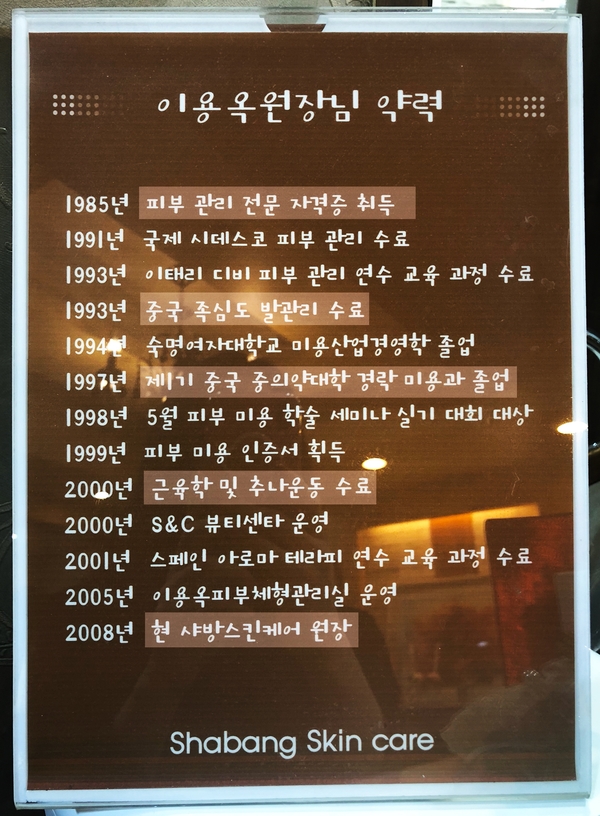 이용옥원장님 약력
1985년 피부 관리 전문 자격증 취득
1991년 국제 시데스코 피부 관리 수료
1993년 이태리 디비 피부 관리 연수 교육 과정 수료
1993년 중국 족심도 발관리 수료
1994년 숙명여자대학교 미용산업경영학 졸업
1997년 제1기 중국 중의약대학 경락 미용과 졸업
1998년 5월 피부 미용 학술 세미나 실기 대회 대상
1999년 피부 미용 인증서 획득
2000년 근육학 및 추나운동 수료
2000년 S&C 뷰티센타 운영
2001년 스페인 아로마 테라피 연수 교육 과정 수료
2005년 이용옥피부체형관리실 운영
2008년 현 샤방스킨케어 원장
Shabang Skin care